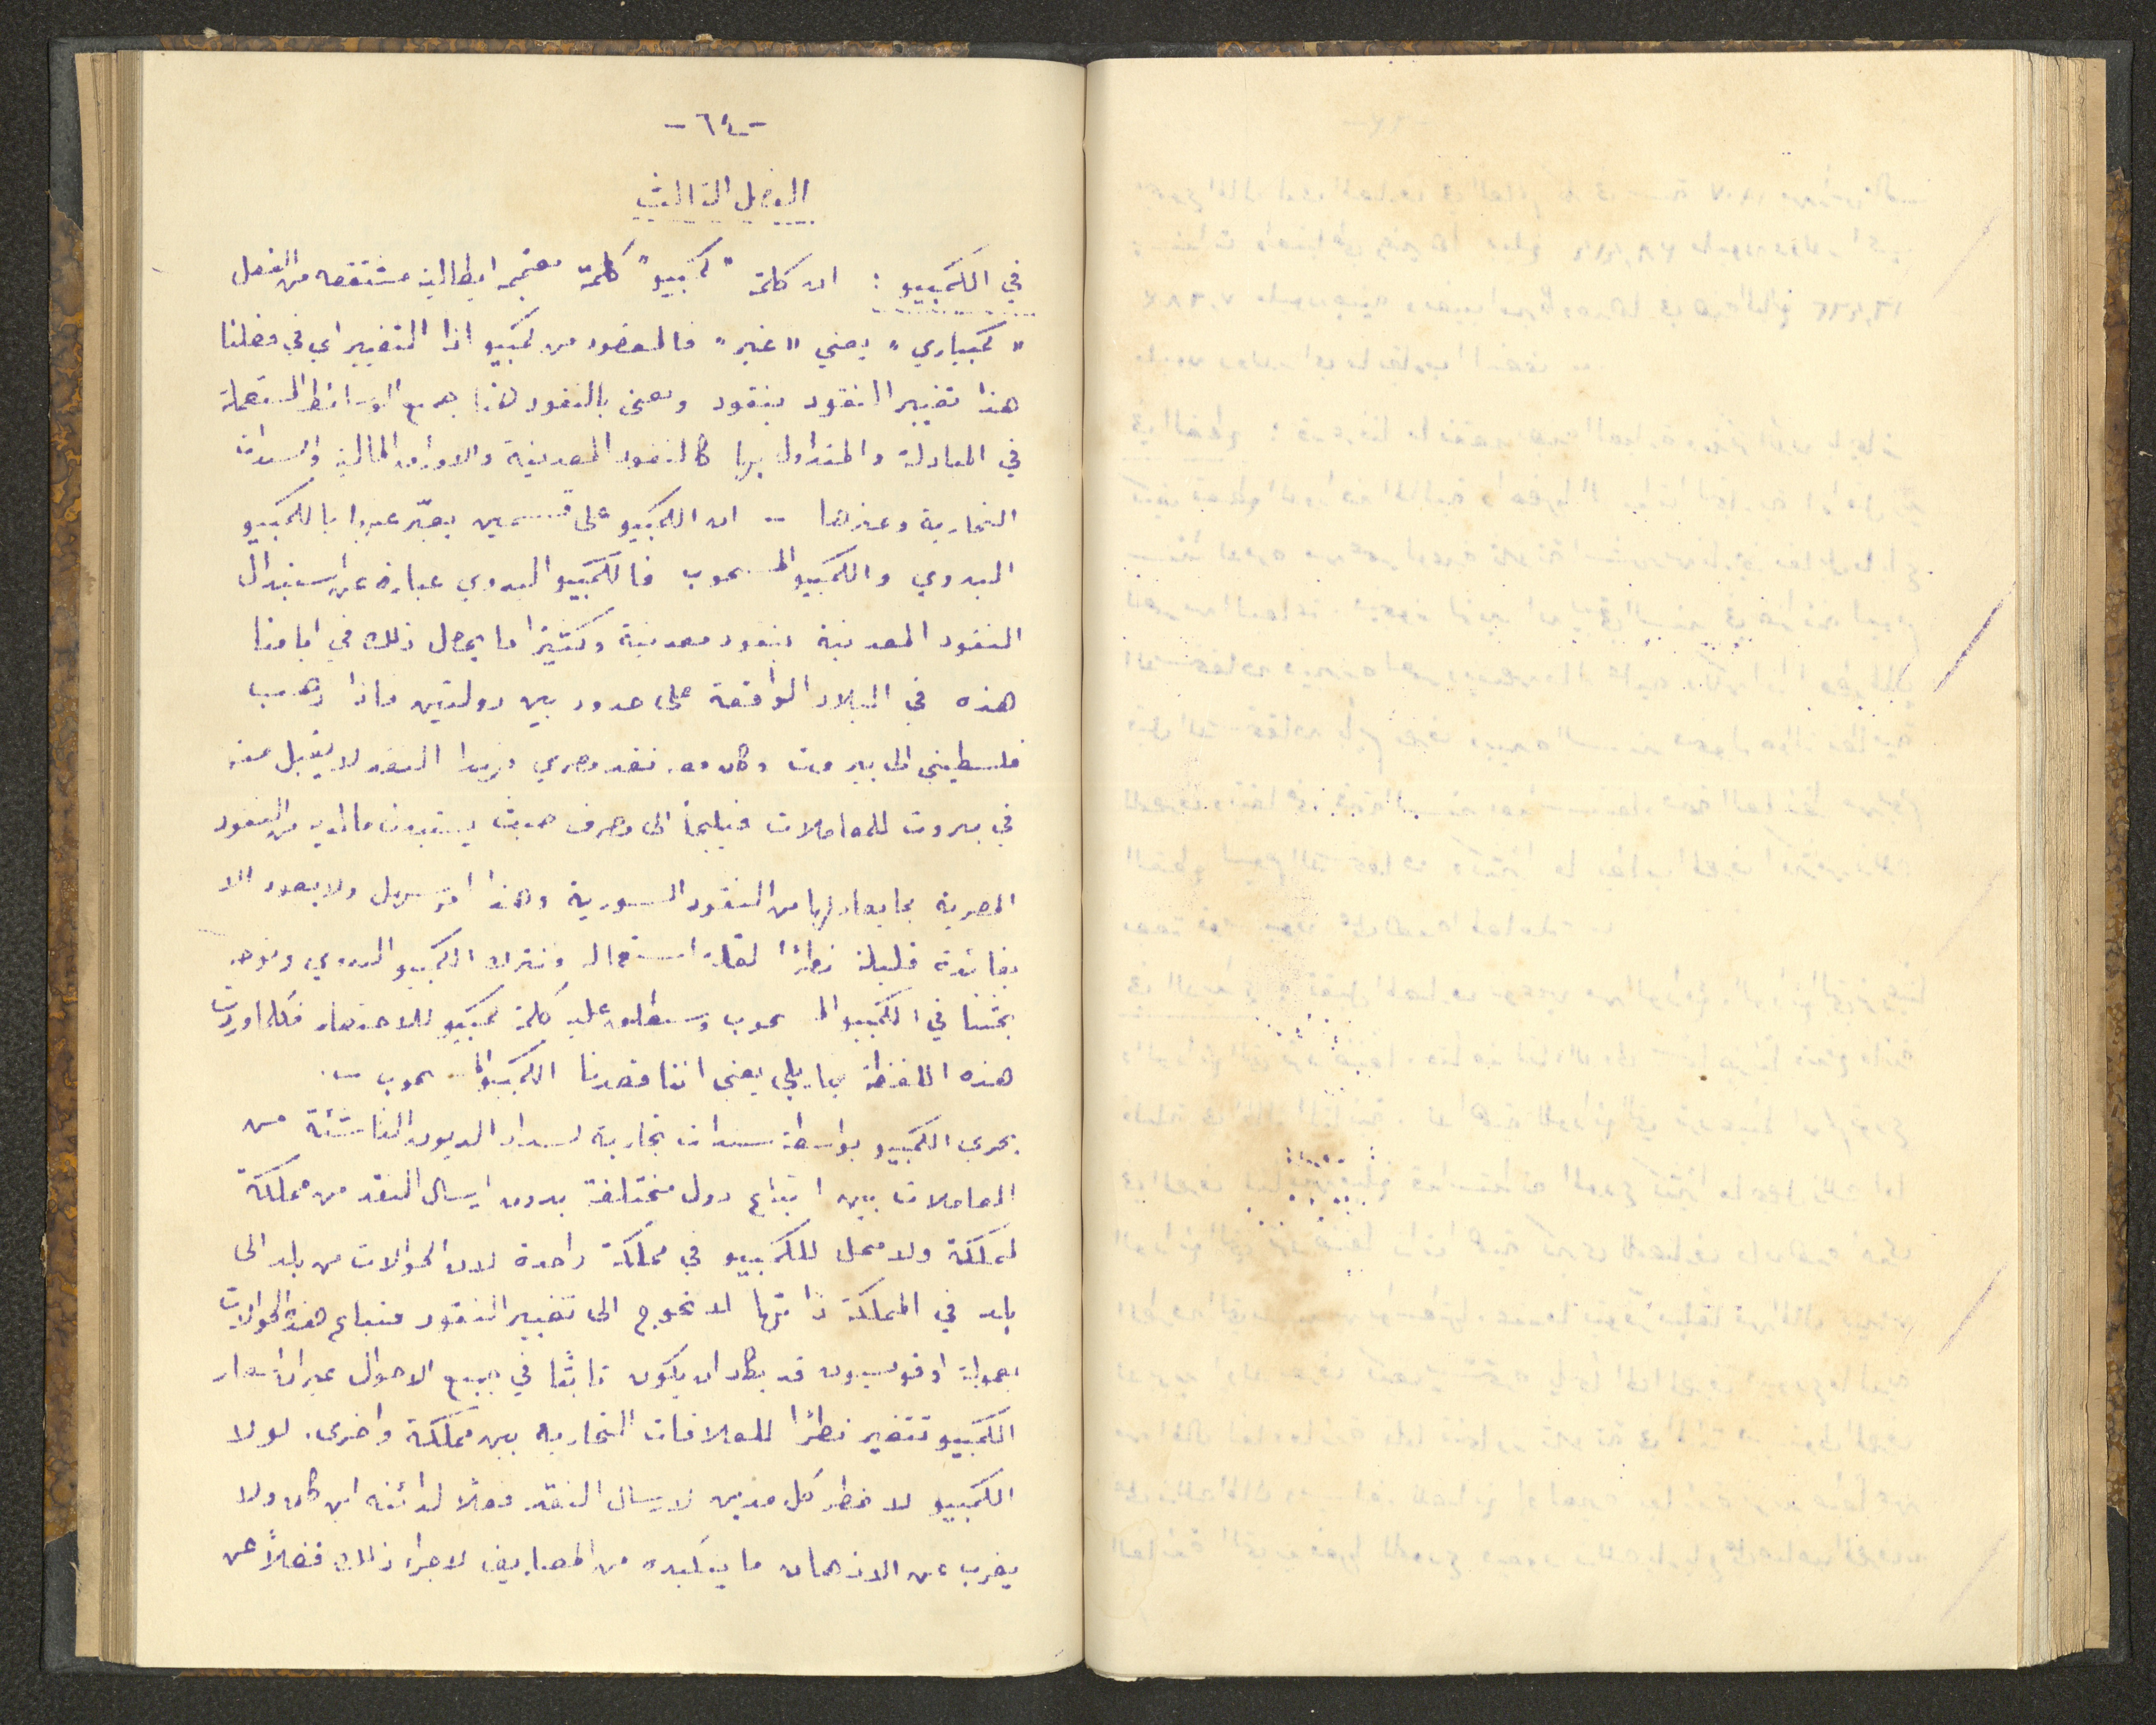 -٦٤-
الفصل الثالث
في الكمبيو : ان كلمة "كمبيو" كلمة معجمه ايطالية مشتقه من الفعل
"كمبياري" يعني "غير" فالمقصود من كمبيو اذا التغيير اي في فصلنا
هذا تغيير النقود بنقود ومعنى بالنقود هنا جميع الوسائط المستعملة
في المبادلة والمتداول بها كالنقود المعدنية والاوراق المالية والسندات
التجارية وغيرها .. ان الكمبيو على قسمين يعبّر عنها بالكمبيو
اليدوي والكمبيو المسحوب فالكمبيو اليدوي عبارة عن استبدال
النقود المعدنية بنقود معدنية وكثيرا ما يحصل ذلك في ايامنا
هذه في البلاد الواقعة على حدود بين دولتين فاذا ذهب
فلسطيني الى بيروت وكان معه نقد مصري وهذا النقد لا يقبل منه
في بيروت للمعاملات فيلجأ الى مصرف حيث يستبدل ما لديه من النقود
المصرية بما يعادلها من النقود السورية وهذا امر سهل ولا يعود الا
بفائدة قليلة نظرًا لقلة استعماله ونترك الكمبيو اليدوي ونوجه
بحثنا في الكمبيو المسحوب وسنطلق عليه كلمة كمبيو للاختصار فكلما وردت
هذه اللفظة بما يلي يعني اننا قصدنا الكمبيو المسحوب ..
يجري الكمبيو بواسطة سندات تجارية لسداد الديون الناشئة من
المعاملات بين اتباع دول مختلفة بدون ارسال النقد من مملكة
لمملكة ولا محل للكمبيو في مملكة واحدة لان الحوالات من بلد الى
بلد في المملكة ذاتها لا تحوج الى تغيير النقود فتباع هذه الحوالات
بعمولة او قومسيون قد يكاد ان يكون ثابتًا في جميع الاحوال غير ان اسعار
الكمبيو تتغير نظرًا للعلاقات التجارية بين مملكة واخرى. لولا
الكمبيو لاضطر كل مدين لارسال النقد فعلًا لدائنه اين كان ولا
يغرب عن الاذهان ما يتكبده من المصاريف لاجراء ذلك فضلًا عن